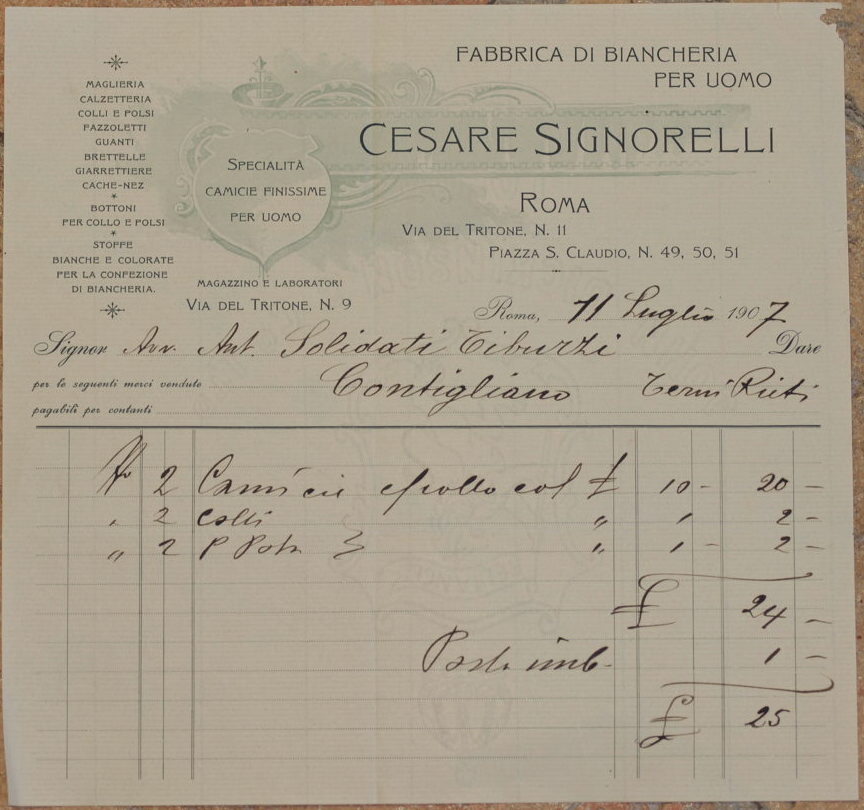 FABBRICA DI BIANCHERIA
PER UOMO
CESARE SIGNORELLI
ROMA
VIA DEL TRITONE, N. 11
PIAZZA S. CLAUDIO, N. 49, 50, 51
MAGLIERIA
CALZETTERIA
COLLI E POLSI
FAZZOLETTI
GUANTI
BRETTELLE
GIARRETTIERE
CACHE-NEZ
*
BOTTONI
PER COLLO E POLSI
*
STOFFE
BIANCHE E COLORATE
PER LA CONFEZIONE
DI BIANCHERIA.
SPECIALITÀ
CAMICIE FINISSIME
PER UOMO
MAGAZZINO E LABORATORI
VIA DEL TRITONE, N. 9
Roma, 11 Luglio 1907
Signor Avv. Ant. Solidati Tiburzi Dare
per le seguenti merci vendute Contigliano Terni Rieti
pagabili per contanti
No 2 Camicie col £ 10 - 20 -
" 2 Colli " 1 2 -
" 2 P " 1 - 2 -
£ 24 -
imb. 1 -
£ 25